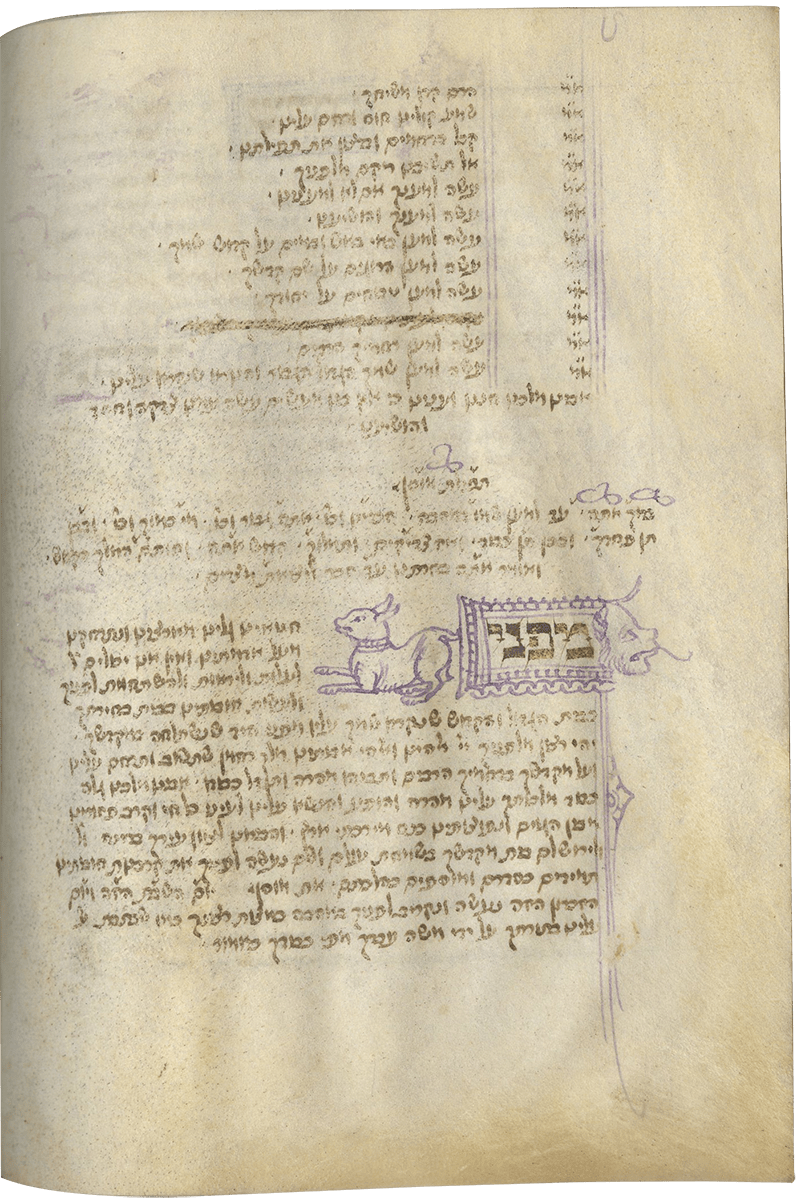 א״מ הרם קרן משיחך ·
א״מ שמע קולינו חוס ורחם עלינו ·
א״מ קבל ברחמים וברצון את תפילתינו ·
א״מ אל תשיבנו ריקם מלפניך ·
א״מ עשה למענך אם לא למעננו ·
א״מ עשה למענך והושיענו ·
א״מ עשה למען באי באש ובמים על קדוש שמך ·
א״מ עשה למען הרוגים על שם קדשך ·
א״מ עשה למען טבוחים על יחודך ·
א״מ
א״מ עשה למען רחמיך הרבים ·
א״מ עשה למען שמך הגדול הגבור והנורא שנקרא עלינו ·
אבינו מלכינו חנינו ועננו כי אין בנו מעשים עשה עמנו צדקה וחסד
והושיענו ·
תפילת מוסף ·
ברוך אתה · עד למען שמו באהבה · זכרינו וכו׳ · אתה גבור וכו׳ · מי כמוך וכו׳ · ובכן
תן פחדך · ובכן תן כבוד · ואז צדיקים · ותמלוך · קדוש אתה · המלך הקדוש ·
ואומר אתה בחרתנו עד זכר ליציאת מצרים ·
מפני
חטאינו גלינו מארצינו ונתרחקנו
מעל אדמתינו ואין אנו יכולים ל
לעלות ולראות ולהשתחוות לפניך
ולעשות חובותינו בבית בחירתך
בבית הגדול והקדוש שנקרא שמך עליו מפני היד שנשתלחה במקדשך ·
יהי רצון מלפניך יי׳ אלהינו ואלהי אבותינו מלך רחמן שתשוב ותרחם עלינו
ועל מקדשך ברחמיך הרבים ותבניהו מהרה ותגדל כבודו · אבינו מלכינו גלה
כבוד מלכותך עלינו מהרה והופע והנשא עלינו לעיני כל חי וקרב פזורינו
מבין הגוים ונפוצותינו כנס מירכתי ארץ · והביאנו לציון עירך ברינה ול
ולירושלם בית מקדשך בשמחת עולם ושם נעשה לפניך את קרבנות חובותינו
תמידים כסדרם ומוספים כהלכתם · את מוסף השבת הזה ויום
הזכרון הזה נעשה ונקריב לפניך באהבה כמצות רצונך כמו שכתבת ע
עלינו בתורתך על ידי משה עבדך מפי כבודך כאמור ·